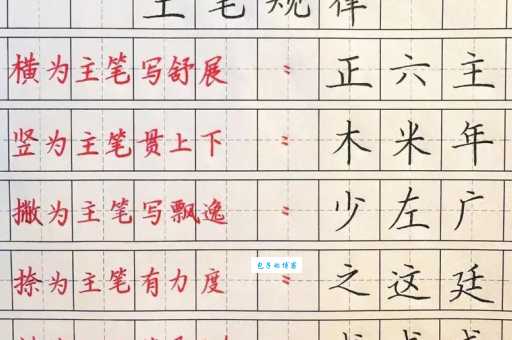 主笔规律
横为主笔写舒展：正六主
竖为主笔贯上下：木米年
撇为主笔写飘逸：少左广
捺为主笔有力度：之这廷
包子的博客